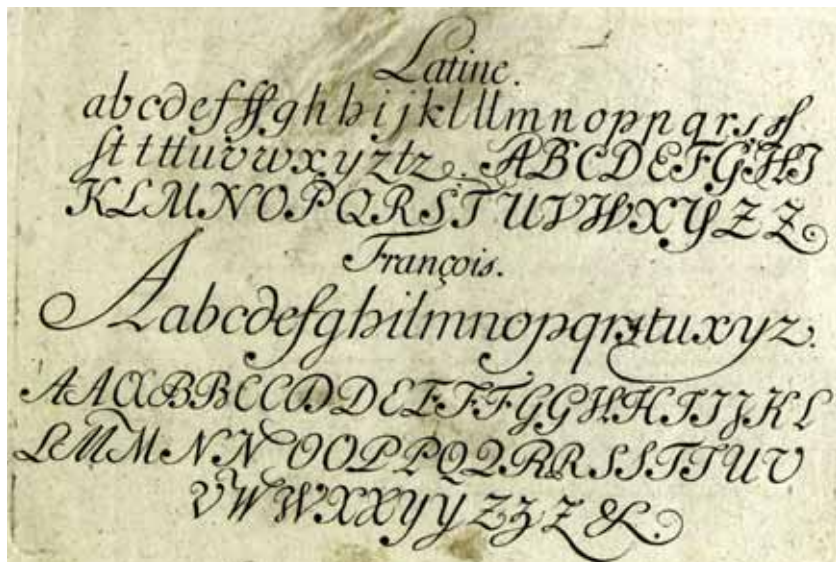 Latine.
a b c d e f ff g h h i j k l ll m n o p p q r s ſſ
ſt t tt u v w x y z tz. A B C D E F G H I
K L M N O P Q R S T U V W X Y Z Z
François.
A a b c d e f g h i l m n o p q r s t u x y z.
A A A B B C C D D E E F F G G H H I I J K L
L M M N N O O P P Q Q R R S S T T U V
V W W X X Y Y Z Z Z &.